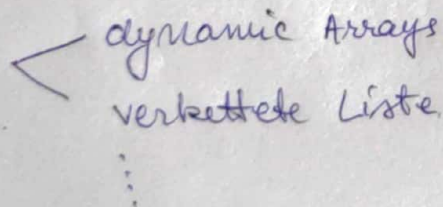 dynamic Arrays
verkettete Liste